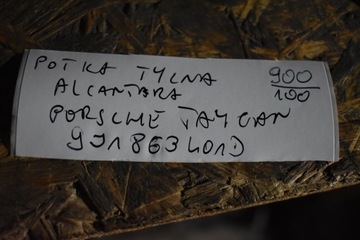 POTKA TYLNA
ALCANTARA
PORSCHE TAYCAN
9J1863401D
900
100